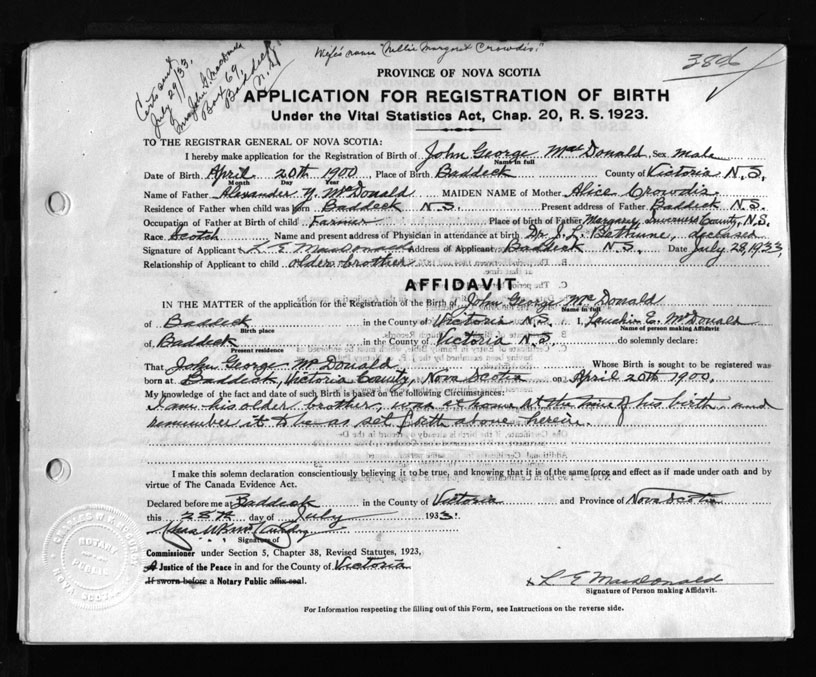 Wife's name "Nellie Margaret Crowdis."
3896
July 29/33,
Mrs John G MacDonald
Box 69,
Baddeck,
N.S.
PROVINCE OF NOVA SCOTIA
APPLICATION FOR REGISTRATION OF BIRTH
Under the Vital Statistics Act, Chap. 20, R. S. 1923.
TO THE REGISTRAR GENERAL OF NOVA SCOTIA:
I hereby make application for the Registration of Birth of John George MacDonald Sex male
Name in full
Date of Birth April 20th 1900 Place of Birth Baddeck County of Victoria N.S.
Month Day Year
Name of Father Alexander McDonald MAIDEN NAME of Mother Alice Crowdis
Residence of Father when child was born Baddeck N.S. Present address of Father Baddeck N.S.
Occupation of Father at Birth of child Farmer Place of birth of Father Margaree, Inverness County, N.S.
Race Scotch Name and present address of Physician in attendance at birth Dr. J. L. Bethune, deceased
Signature of Applicant x L E MacDonald Address of Applicant Baddeck N.S. Date July 28, 1933,
Relationship of Applicant to child older brother
AFFIDAVIT
IN THE MATTER of the application for the Registration of the Birth of John George McDonald
Name in full
of Baddeck in the County of Victoria N.S. I, Lauchin E. McDonald
Birth place Name of person making Affidavit
of, Baddeck in the County of Victoria N.S. do solemnly declare:
Present residence
That John George McDonald Whose Birth is sought to be registered was
born at Baddeck, Victoria County, Nova Scotia on April 20th 1900.
My knowledge of the fact and date of such Birth is based on the following Circumstances:
I am his older brother, was at home at the time of his birth, and
remember it to be as set forth above herein.
I make this solemn declaration conscientiously believing it to be true, and knowing that it is of the same force and effect as if made under oath and by
virtue of The Canada Evidence Act.
Declared before me at Baddeck in the County of Victoria and Province of Nova Scotia
this 28th day of July 1933.
Signature of
Commissioner under Section 5, Chapter 38, Revised Statutes, 1923,
A Justice of the Peace in and for the County of Victoria
If sworn before a Notary Public affix seal.
x L E MacDonald
Signature of Person making Affidavit.
For Information respecting the filling out of this Form, see Instructions on the reverse side.
NOTARY
PUBLIC
NOVA SCOTIA